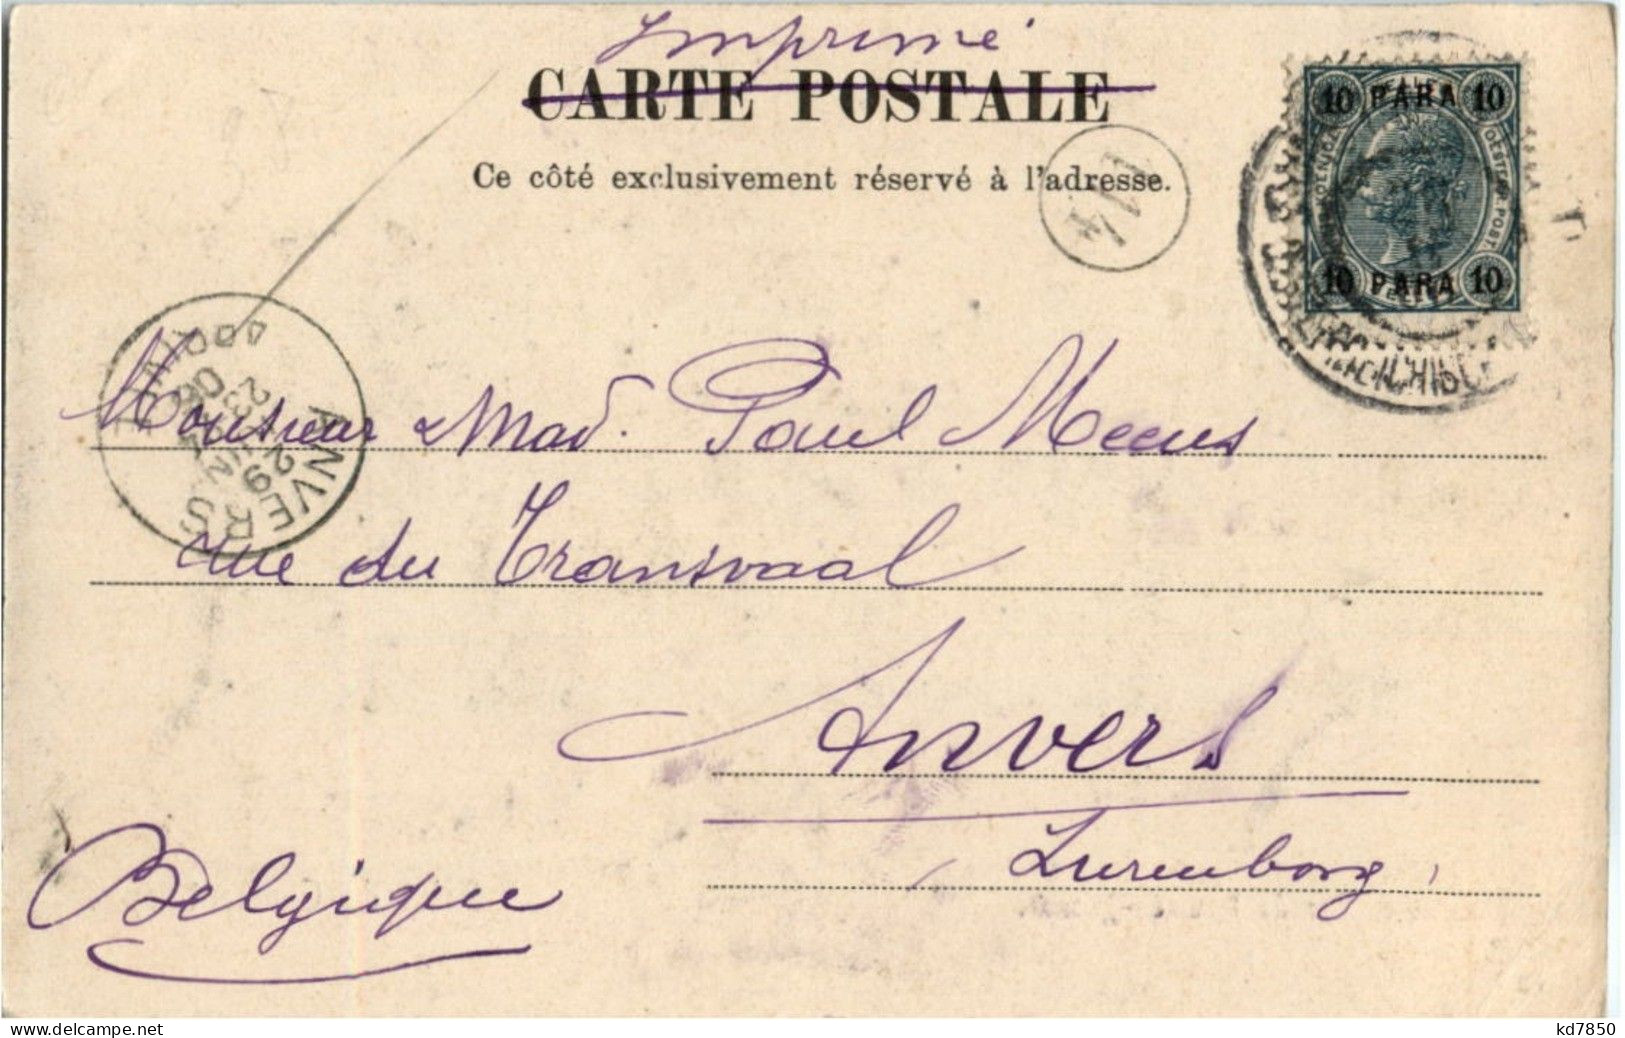 Imprimé
CARTE POSTALE
Ce côté exclusivement réservé à l'adresse.
10 PARA 10
10 PARA 10
ANVERS
Monsieur & Mad. Paul Meeus
rue du Transvaal
Anvers
Belgique
kd7850